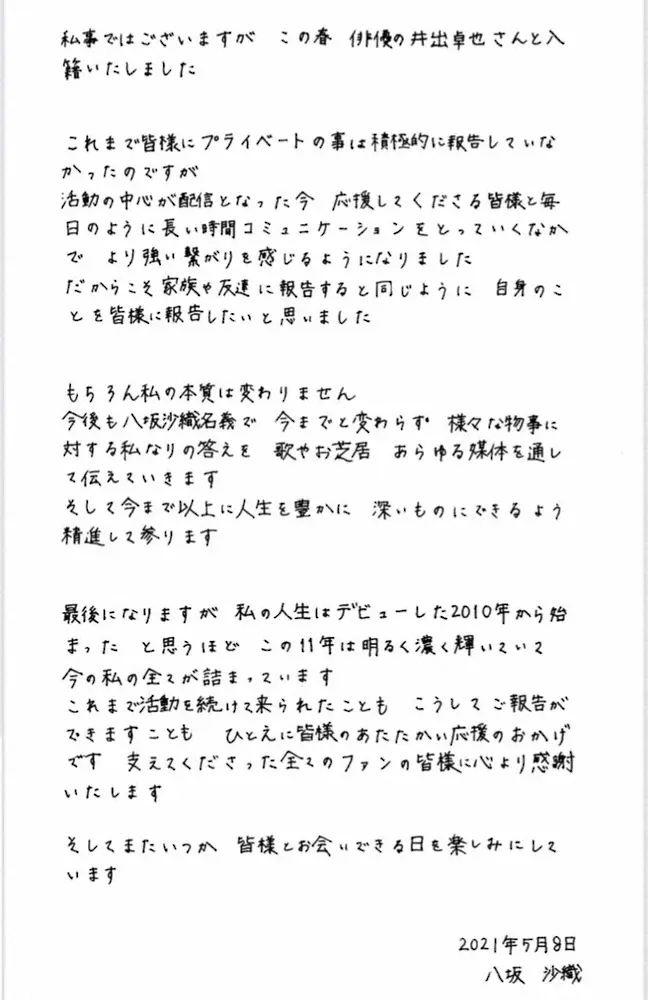 私事ではございますが　この春　俳優の井出卓也さんと入
籍いたしました
これまで皆様にプライベートの事は積極的に報告していな
かったのですが
活動の中心が配信となった今　応援してくださる皆様と毎
日のように長い時間コミュニケーションをとっていくなか
で　より強い繋がりを感じるようになりました
だからこそ家族や友達に報告すると同じように　自身のこ
とを皆様に報告したいと思いました
もちろん私の本質は変わりません
今後も八坂沙織名義で　今までと変わらず　様々な物事に
対する私なりの答えを　歌やお芝居　あらゆる媒体を通し
て伝えていきます
そして今まで以上に人生を豊かに　深いものにできるよう
精進して参ります
最後になりますが　私の人生はデビューした2010年から始
まった　と思うほど　この11年は明るく濃く輝いていて
今の私の全てが詰まっています
これまで活動を続けて来られたことも　こうしてご報告が
できますことも　ひとえに皆様のあたたかい応援のおかげ
です　支えてくださった全てのファンの皆様に心より感謝
いたします
そしてまたいつか　皆様とお会いできる日を楽しみにして
います
2021年5月8日
八坂　沙織